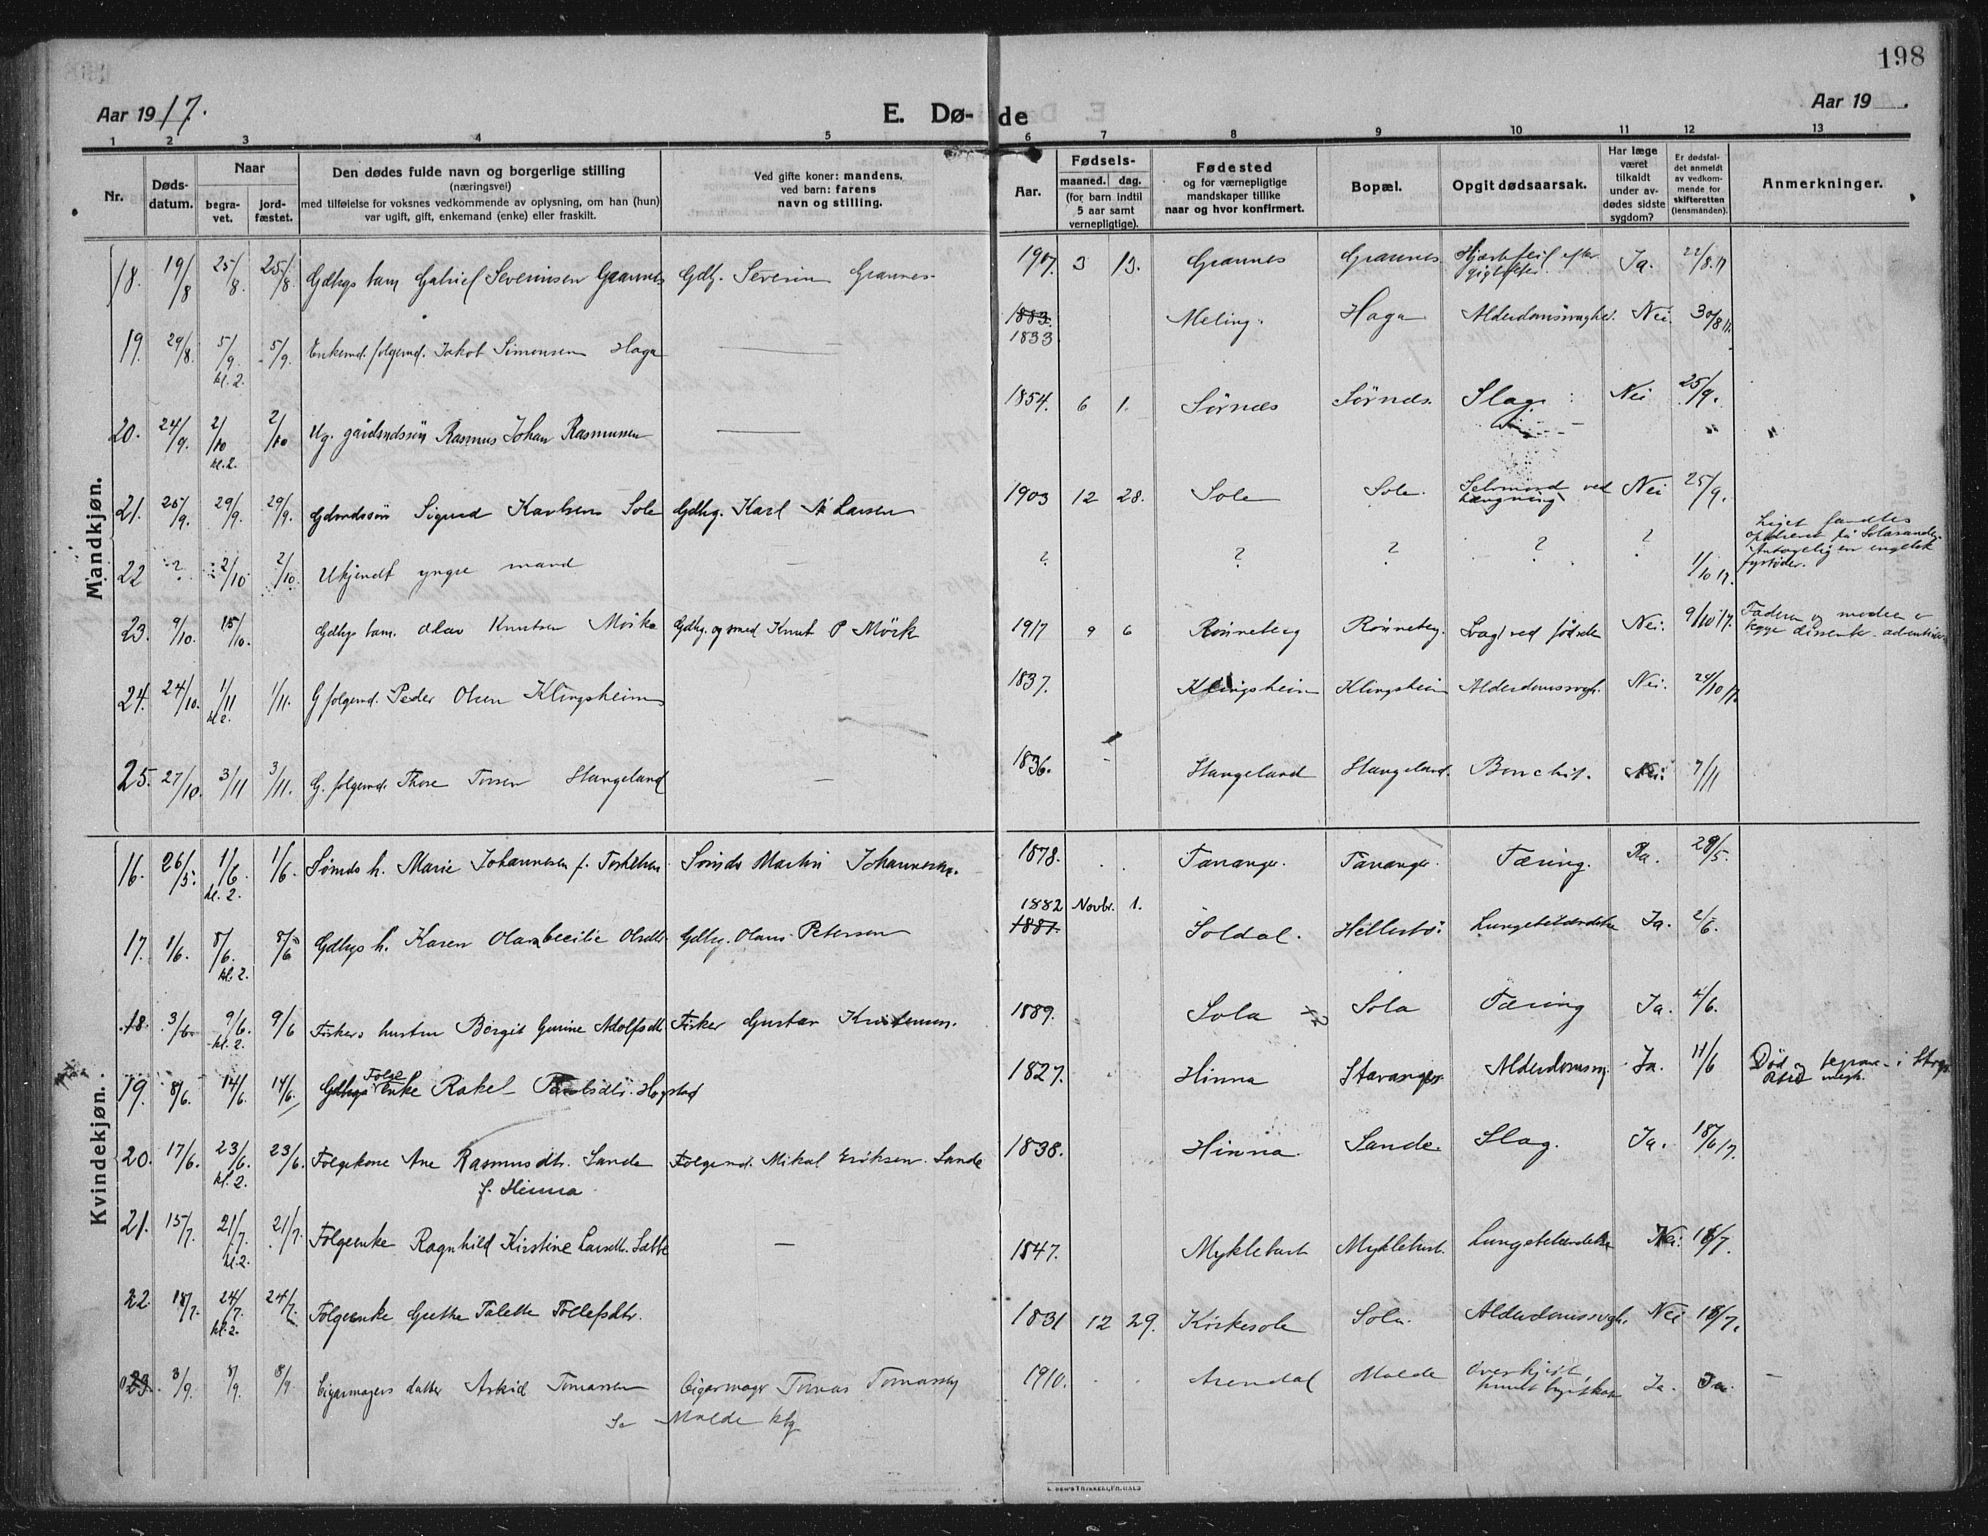 198
Aar 1917.
E. Døde
Aar 19
1 2 3 4 5 6 7 8 9 10 11 12 13
Nr.
Dødsdatum.
Naar
begravet.
jordfæstet.
Den dødes fulde navn og borgerlige stilling
(næringsvei)
med tilføielse for voksnes vedkommende av oplysning, om han (hun)
var ugift, gift, enkemand (enke) eller fraskilt.
Ved gifte koner: mandens,
ved barn: farens
navn og stilling.
Aar.
Fødsels-
maaned. dag.
(for barn indtil
5 aar samt
vernepligtige).
Fødested
og for værnepligtige
mandskaper tillike
naar og hvor konfirmert.
Bopæl.
Opgit dødsaarsak.
Har læge
været
tilkaldt
under avdødes sidste
sygdom?
Er dødsfaldet anmeldt
av vedkommende for
skifteretten
(lensmanden).
Anmerkninger.
Mandkjøn.
18. 19/8 25/8. 25/8. Gdbgs barn Gabriel Severinsen Grannes Gdbg. Severin Grannes 1907. 3 13. Grannes Grannes Hjertefeil efter Ja. 22/8.17
19. 29/8. 5/9. kl. 2. 5/9. Enkemd. følgemd. Jakob Simonsen Haga 1883. 1833 Meling. Haga Nei. 30/8 17.
20. 24/9. 2/10 kl. 2. 2/10 Ug. gårdmdssøn Rasmus Johan Rasmussen 1854. 6 1. Sørnes Sørnes. Slag Nei 25/9.
21. 25/9. 29/9. 29/9. Sigurd Karlsen Sole Gdbg. Karl A Larsen 1903 12 28. Sole Sole. Selvmord ved hængning Nei 25/9.
22 ? 2/10 2/10. Ukjendt yngre mand ? ? ? ? ? 1/10 17. Liget fandtes
en engelsk
fyrbøder.
23. 9/10. 15/10. Gdbgs barn. Olav Knutsen Mörk Gdbg. og smed Knut P Mörk 1917 9 6 Rönneberg Rönneberg. Svag ved fødselen Nei. 9/10 17. Faderen og moderen er
begge dissenter
24. 24/10. 1/11 kl 2. 1/11. G følgemd. Peder Olsen Klingsheim 1837. Klingsheim Klingsheim Alderdomssvagh. Nei. 24/10 17.
25. 27/10. 3/11 3/11. G. følgemd. Thore Torsen Hangeland 1836. Hangeland Hangeland. Bronchit. Nei. 7/11
Kvindekjøn.
16. 26/5. 1/6. kl. 2. 1/6. Sømds h. Marie Johannesen f. Torkelsen Sømds Martin Johannesen. 1878. Tananger. Tananger. Tæring. Ja. 29/5.
17. 1/6. 8/6. kl. 2. 8/6 Gdbgs h. Karen Olava Cecilie Olsdtr. Gdbg. Olaus Petersen 1882 1881. Novbr. 1. Soldal. Hellestø. Lungebetændelse Ja. 2/6.
18. 3/6. 9/6. kl. 2. 9/6 Fiskers hustru Borgit Gurine Adolfsdtr. Fisker Gustav 1889. Sola Sola Tæring Ja. 4/6.
19. 8/6. 14/6. 14/6. Gdbgs Følge Enke Rakel Hogstad 1827. Hinna Stavanger Ja. 11/6 Død og i Stvgr.
20. 17/6. 23/6. kl. 2. 23/6. Følgekone Ane Rasmusdtr. Sande
f. Hinna Følgemd. Mikal Eriksen Sande 1838. Hinna. Sande. Slag. Ja. 18/6 17.
21. 15/7. 21/7. kl. 2. 21/7. Følgeenke Ragnhild Kirstine Larsdtr. Sætre 1847. Myklebust Myklebust. Lungebetændelse Nei. 16/7.
22 18/7. 24/7. kl. 2. 24/7. Følgeenke Grethe Talette Tollefsdtr. 1831 12 29. Kirkesole Sola. Alderdomssvagh. Nei 18/7.
23. 3/9. 8/9. 8/9. Cigarmagers datter Astrid Tomassen Cigarmager Tomas Tomassen
Molde 1910. Arendal Molde Overkjørt, Ja. Ja.